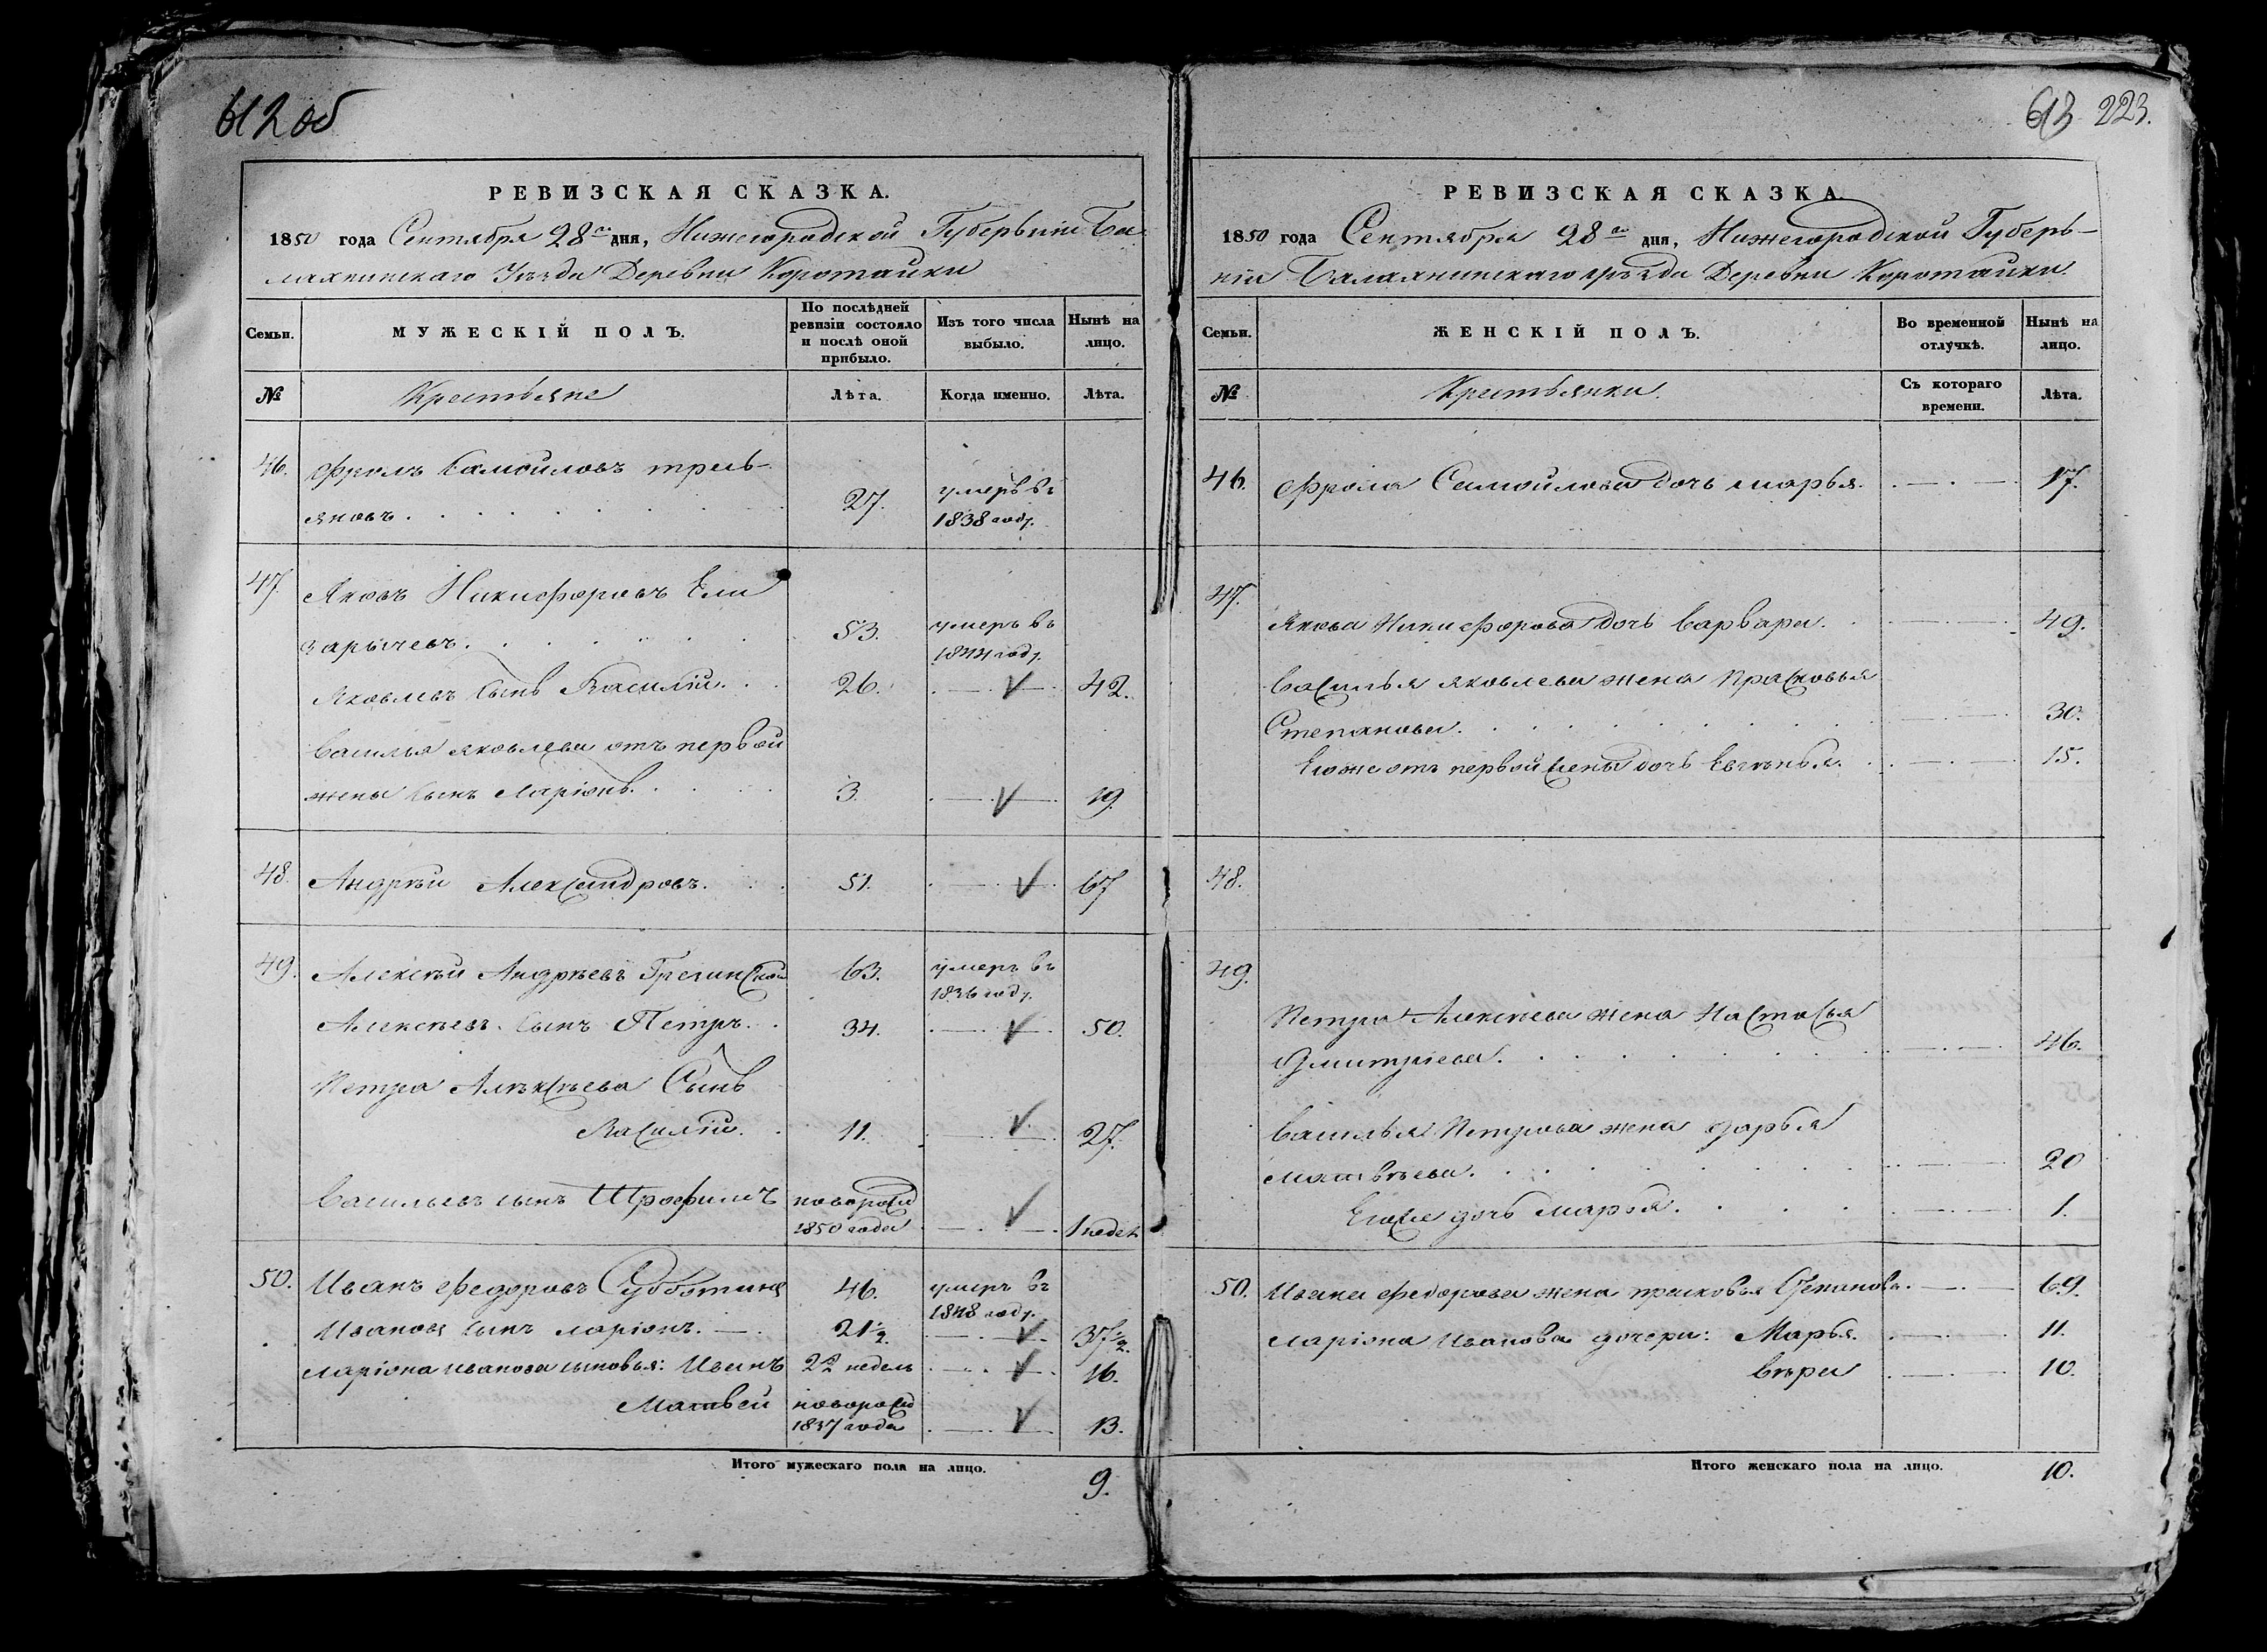 612 об
РЕВИЗСКАЯ СКАЗКА.
1850 года Сентября 28го дня, Нижегородской Губернии Ба
лахнинскаго Уѣзда Деревни Коротайки
Семьи.
МУЖЕСКІЙ ПОЛЪ.
По послѣдней
ревизіи состояло
и послѣ оной
прибыло.
Изъ того числа
выбыло.
Нынѣ на
лицо.
№
Крестьяне
Лѣта.
Когда именно.
Лѣта.
46. Фролъ Самойловъ треть-
яковъ. 27. умеръ въ
1838 году.
47. Яковъ Никифоровъ Ели
зарычевъ. 53. умеръ въ
1844 году.
Яковлевъ сынъ Василій. 26. 42.
Василья яковлева отъ первой
жены сынъ Ларіонъ. 3. 19.
48. Андрѣй Александровъ. 51. 67
49. Алексѣй Андрѣевъ 63. умеръ въ
1836 году.
Алексѣевъ сынъ Петръ. 34. 50.
Петра Алексѣева Сынъ
Василій. 11. 27.
Васильевъ сынъ Трофимъ новорожд
1850 года 1 недел
50. Иванъ Федоровъ Субботинъ 46. умеръ въ
1848 году.
Ивановъ сынъ Ларіонъ. 21½ 37½.
Ларіона Иванова сыновья: Иванъ 22 недель 16.
Матвей новорожд
1837 года 13.
Итого мужескаго пола на лицо. 9.
613 223.
РЕВИЗСКАЯ СКАЗКА.
1850 года Сентября 28го дня, Нижегородской Губерь-
ніи Балахнинскаго уѣзда Деревни Коротайки.
Семьи.
ЖЕНСКІЙ ПОЛЪ.
Во временной
отлучкѣ.
Нынѣ на
лицо.
№
Крестьянки.
Съ котораго
времени.
Лѣта.
46. Фрола Самойлова дочь марья. 17.
47.
Якова Никифорова дочь Варвара. 49.
Василья яковлева жена Прасковья
Степанова. 30.
Егоже отъ первой жены дочь Евгенья. 15.
48.
49.
Петра Алексѣева жена Настасья
Дмитріева. 46.
Василья Петрова жена дарья
матвѣева. 20
Егоже дочь марья. 1.
50. Ивана Федорова жена прасковья Степанова. 69.
Ларіона Иванова дочери: Марья. 11.
вѣра 10.
Итого женскаго пола на лицо. 10.